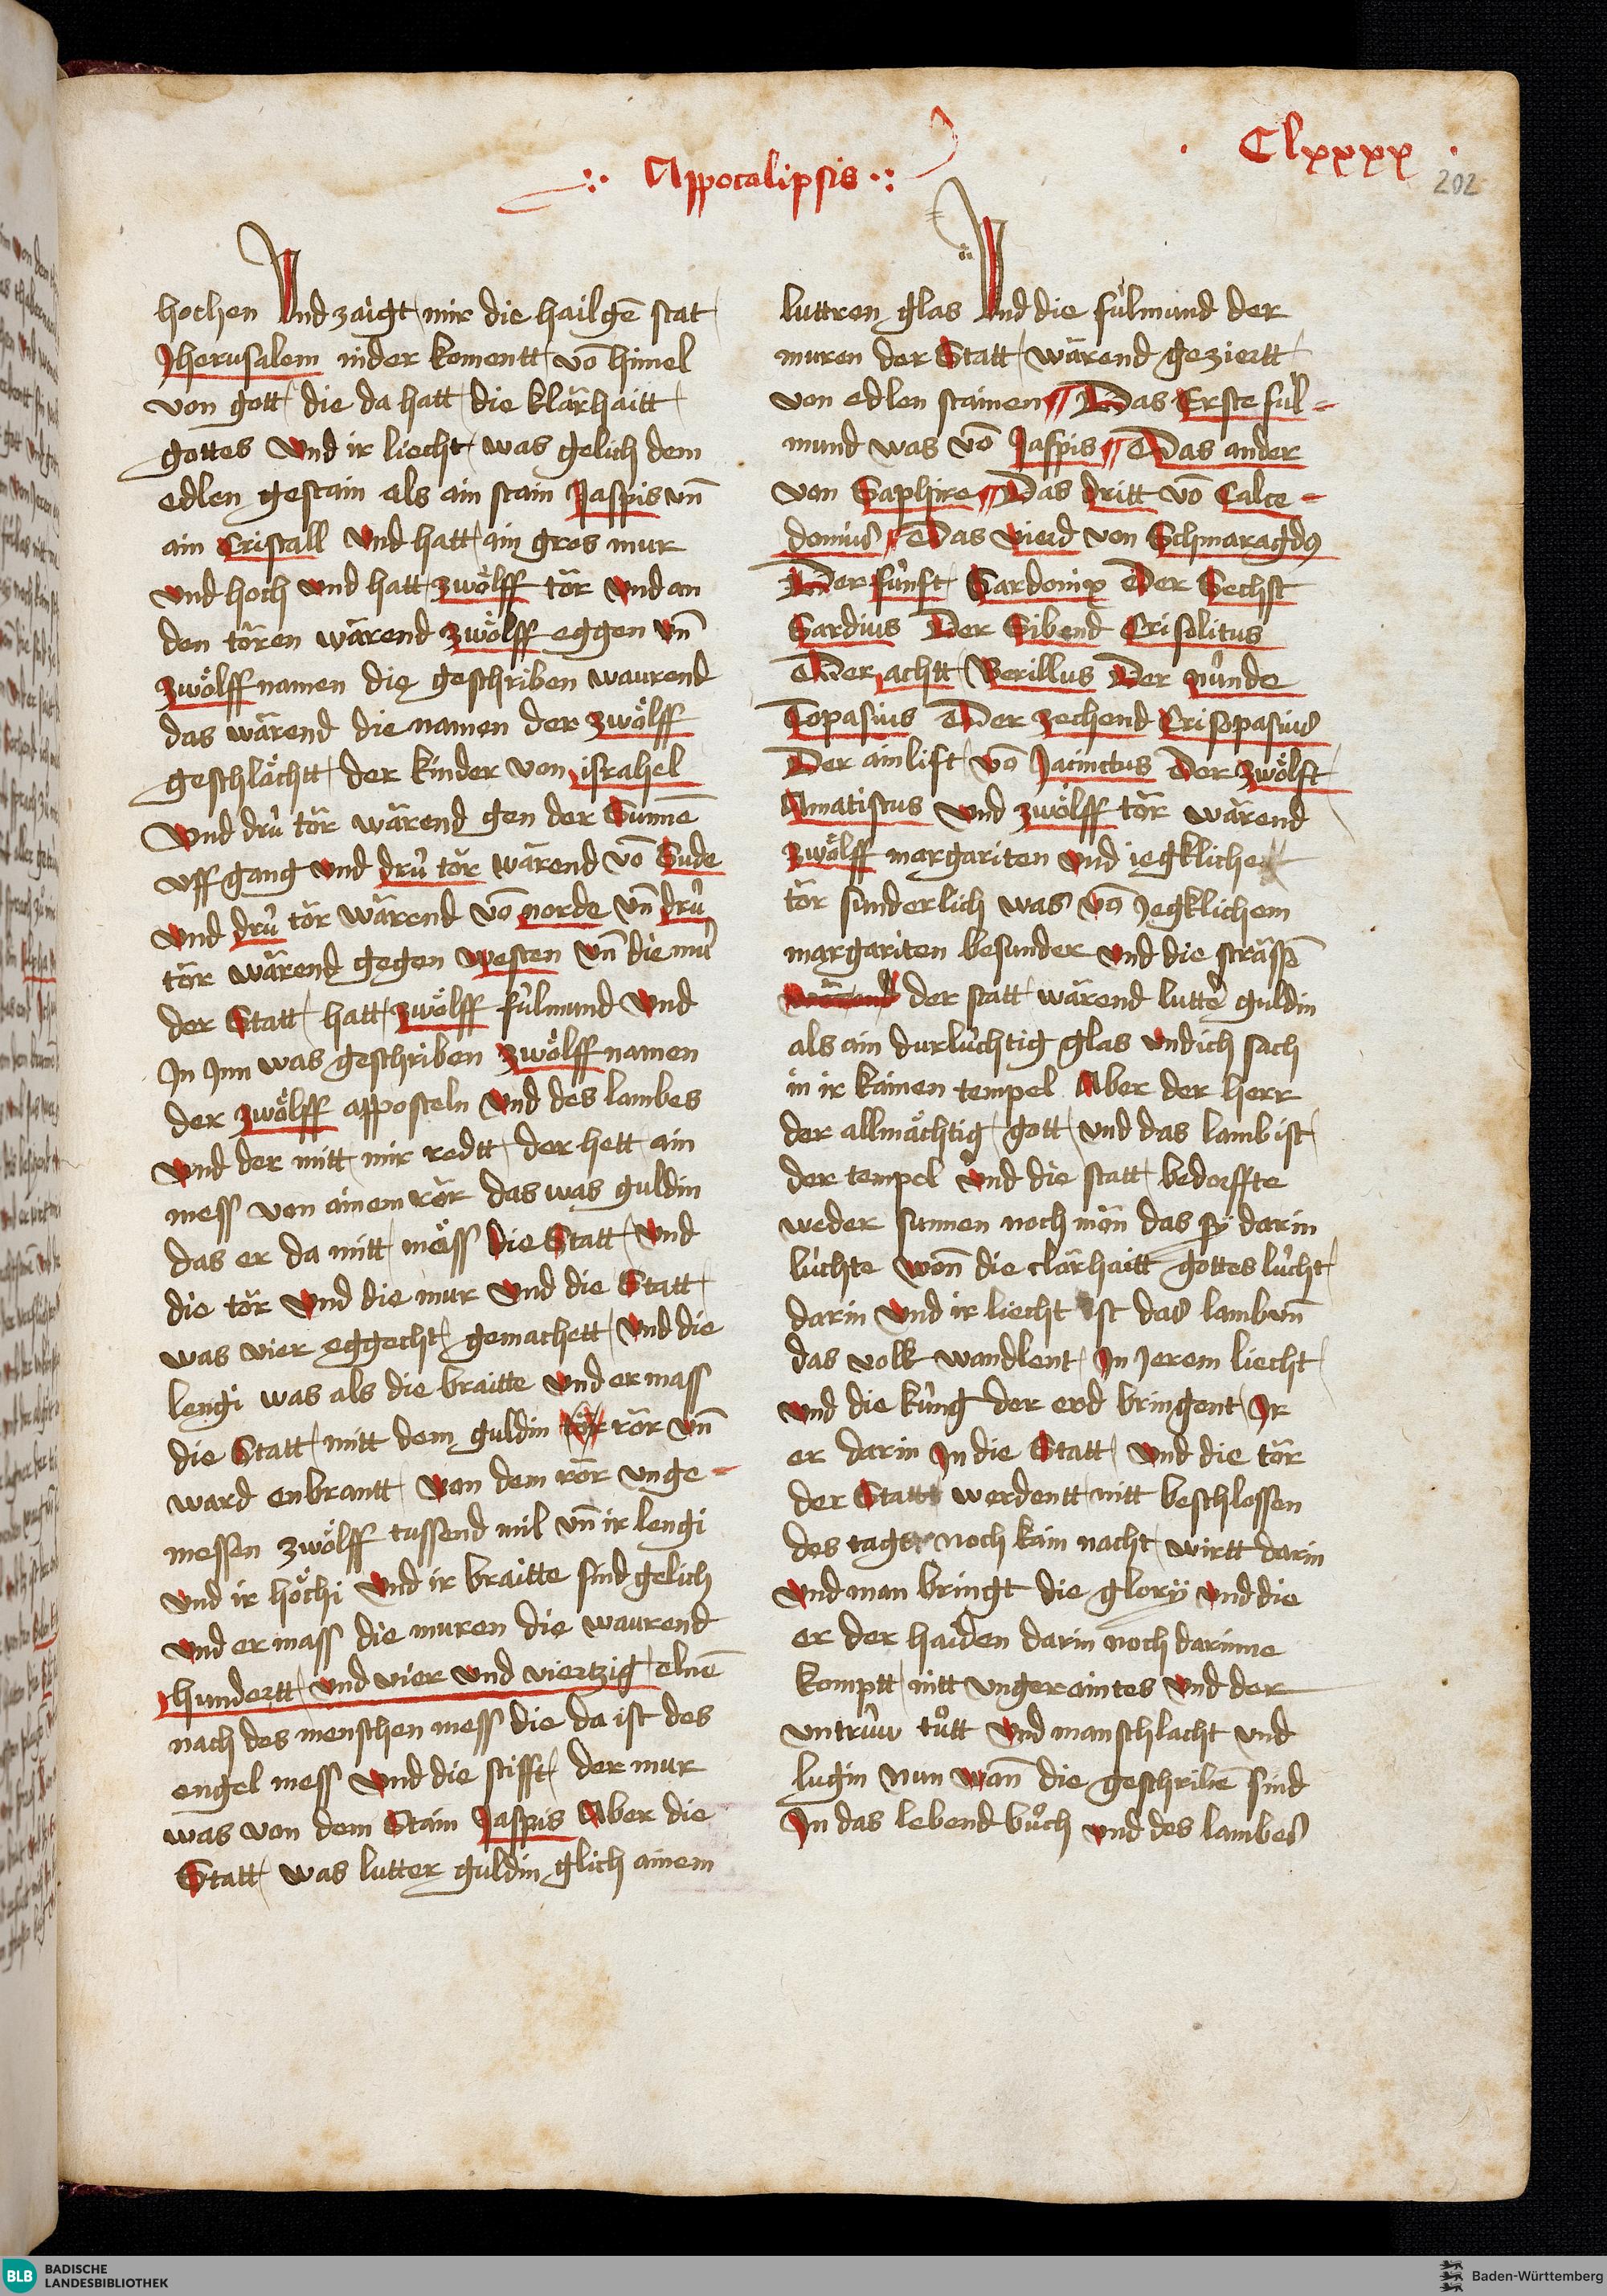 .: Appocalipsis .:
. Clxxxx .
202
hochen Und zaigt mir die hailgē stat
Jherusalem inder komentt vō himel
von gott die da hatt die klärhaitt
gottes Und ir liecht was gelich dem
edlen gestain als ain stain Jaspis vn̄
ain Cristall Und hatt ain gros mur
und hoch und hatt zwölff tör Und an
den tören wärend zwölff eggen vn̄
zwölff namen die geschriben waurend
das wärend die namen der zwölff
geschlächtt der kinder von israhel
Und drü tör wärend gen der Sunnē
uff gang und drü tör wärend vō Sude
und drü tör wärend vō norde vn̄ drü
tör wärend gegen westen vn̄ die mur
der Statt hatt zwölff fülmund Und
Jn Jnn was geschriben zwölff namen
der zwölff apposteln Und des lambes
Und der mitt mir redtt der hett ain
mess von ainem rör das was guldin
das er da mitt mäss die Statt Und
die tör Und die mur Und die Statt
was vier eggecht gemachett Und die
lengi was als die braitte Und er mass
die Statt mitt dem guldin tör rör vn̄
ward enbrantt von dem rör unge-
messen zwölff tussend mil vn̄ ir lengi
und ir höchi Und ir braitte sind gelich
und er mass die muren die waurend
hundertt und vier und viertzig elnē
nach des menschen mess die da ist des
engel mess Und die stifft der mur
was von dem Stain Jaspis Aber die
Statt was lutter guldin glich ainem
luttren glas Und die fülmund der
muren der Statt wärend geziertt
von edlen stainen Das Erste fül-
mund was vō Jaspis Das ander
von Saphire Das dritt vō Calce-
donius Das vierd von Schmaragdꝰ
Der fünft Sardonix Der Sechst
Sardius Der Sibend Crisolitus
Der achtt Berillus Der nünde
Topasius Der zechend Crisopasius
Der ainlift vō Jacinctus Der zwölft
Amatistus Und zwölff tör wärend
zwölff margariten Und iegkliche
tör sunderlich was vō Jegklichem
margariten besunder Und die strässē
wärend der statt wärend lutter guldin
als ain durlüchtig glas Und ich sach
in ir kainen tempel Aber der herr
der allmächtig gott Und das lamb ist
der tempel Und die statt bedorffte
weder sunnen noch mön das sy darin
lüchte wōn die clärhaitt gottes lücht
darin Und ir liecht ist das lamb vn̄
das volk wandlent Jn Jerem liecht
und die küng der erd bringent Jr
er darin Jn die Statt Und die tör
der Statt werdentt nitt beschlossen
des tages noch kain nacht wirtt darin
Und man bringt die glory Und die
er der haiden darin noch darinne
komptt nitt ungeraintes Und der
untrüw tůtt Und manschlacht Und
lugin nun wān die geschribē sind
Jn das lebend bůch Und des lambes
BLB BADISCHE
LANDESBIBLIOTHEK
Baden-Württemberg